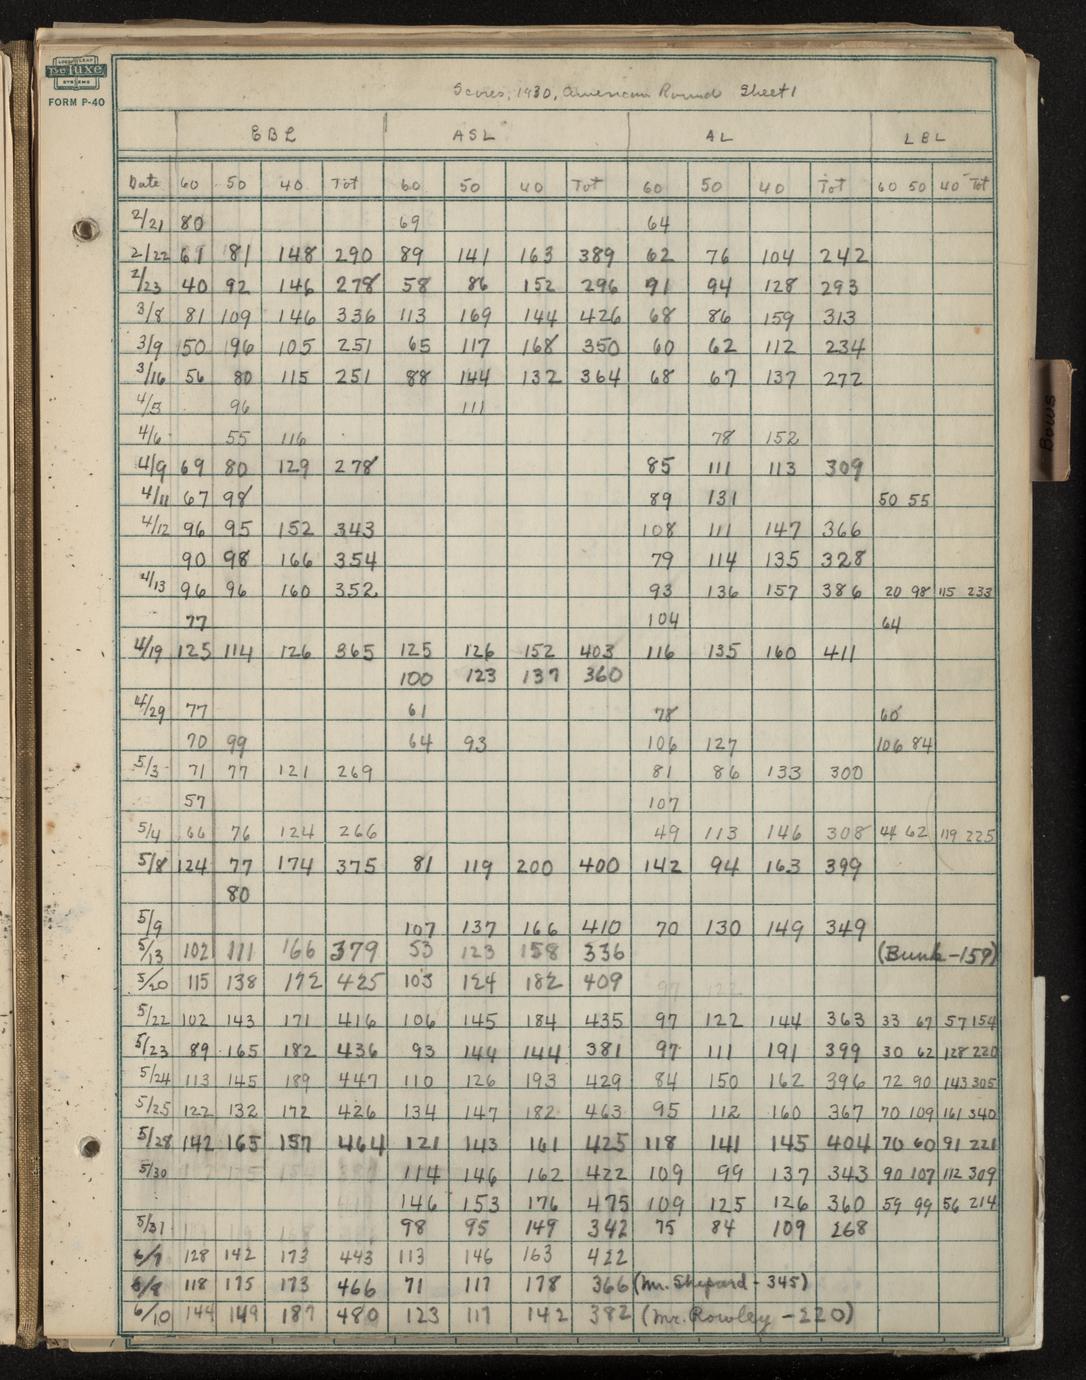 LOOSE LEAF
De Luxe
SYSTEMS
FORM P-40
Scores, 1930, American Round Sheet 1
EBL ASL AL LBL
Date 60 50 40 Tot 60 50 40 Tot 60 50 40 Tot 60 50 40 Tot
2/21 80 69 64
2/22 61 81 148 290 89 141 163 389 62 76 104 242
2/23 40 92 146 278 58 86 152 296 91 94 128 293
3/8 81 109 146 336 113 169 144 426 68 86 159 313
3/9 50 96 105 251 65 117 168 350 60 62 112 234
3/16 56 80 115 251 88 144 132 364 68 67 137 272
4/5 96 111
4/6 55 116 78 152
4/9 69 80 129 278 85 111 113 309
4/11 67 98 89 131 50 55
4/12 96 95 152 343 108 111 147 366
90 98 166 354 79 114 135 328
4/13 96 96 160 352 93 136 157 386 20 98 115 233
77 104 64
4/19 125 114 126 365 125 126 152 403 116 135 160 411
100 123 137 360
4/29 77 61 78 60
70 99 64 93 106 127 106 84
5/3 71 77 121 269 81 86 133 300
57 107
5/4 66 76 124 266 49 113 146 308 44 62 119 225
5/8 124 77 174 375 81 119 200 400 142 94 163 399
80
5/9 107 137 166 410 70 130 149 349
5/13 102 111 166 379 53 123 158 336 (Bunk-159)
5/20 115 138 172 425 103 124 182 409
5/22 102 143 171 416 106 145 184 435 97 122 144 363 33 67 57 154
5/23 89 165 182 436 93 144 144 381 97 111 191 399 30 62 128 220
5/24 113 145 189 447 110 126 193 429 84 150 162 396 72 90 143 305
5/25 122 132 172 426 134 147 182 463 95 112 160 367 70 109 161 340
5/28 142 165 157 464 121 143 161 425 118 141 145 404 70 60 91 221
5/30 114 146 162 422 109 99 137 343 90 107 112 309
146 153 176 475 109 125 126 360 59 99 56 214
5/31 98 95 149 342 75 84 109 268
6/7 128 142 173 443 113 146 163 422
6/8 118 175 173 466 71 117 178 366 (Mr. Shepard - 345)
6/10 144 149 187 480 123 117 142 382 (Mr. Rowley - 220)
Bows